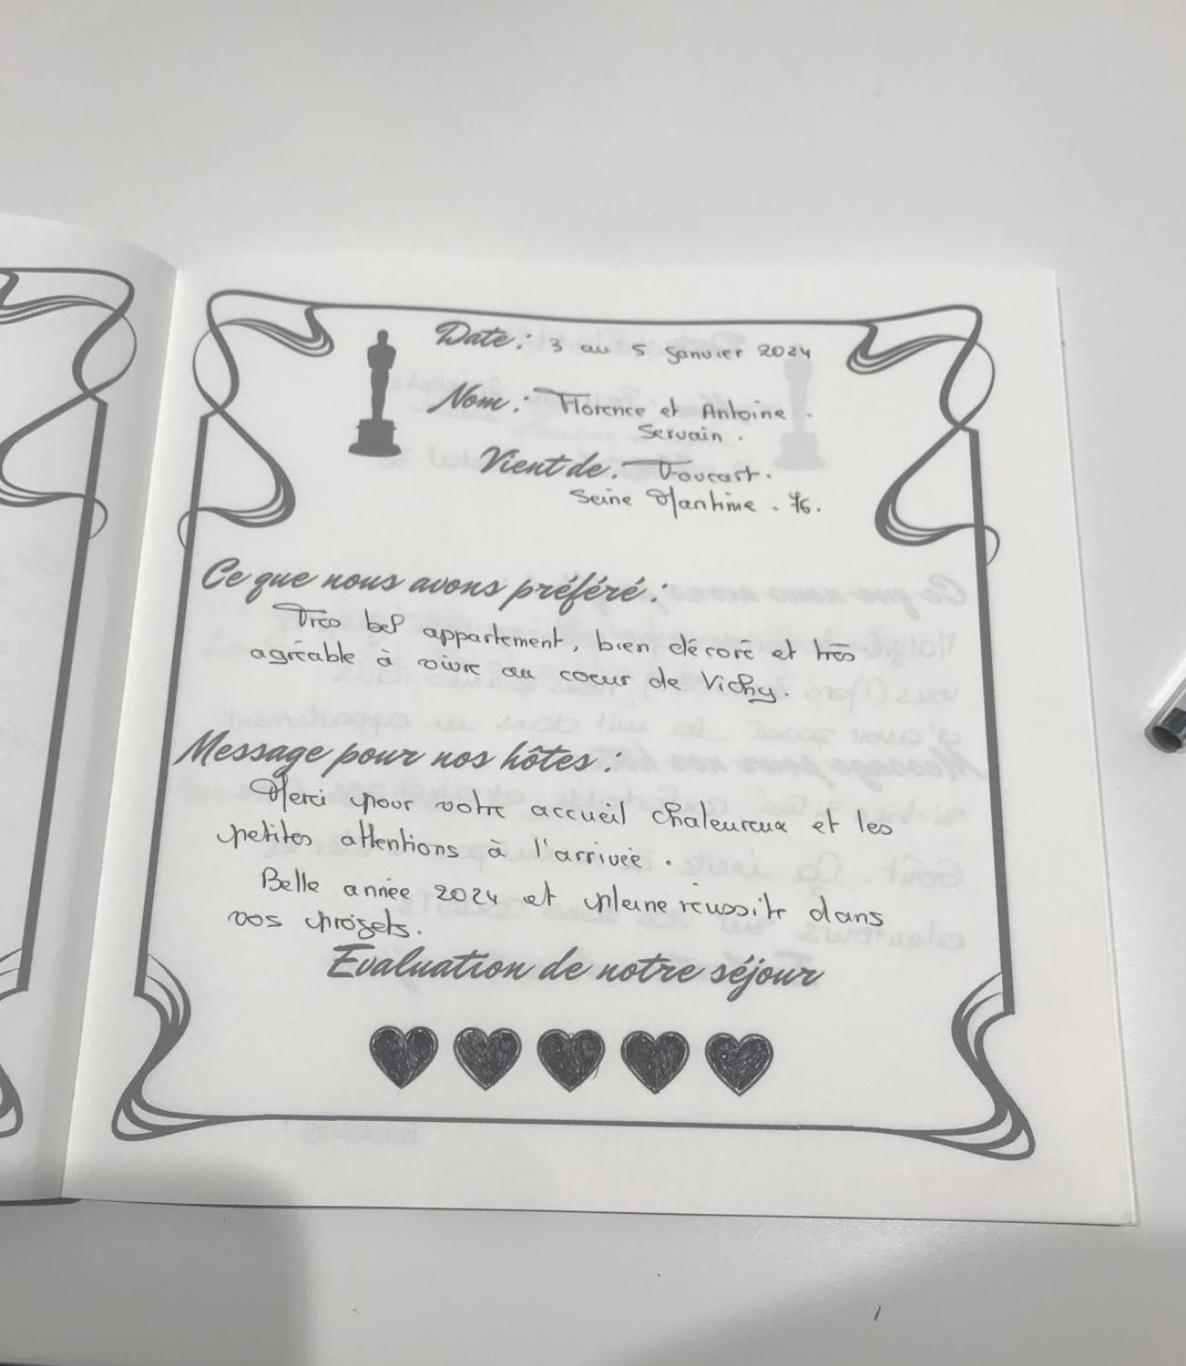 Date : 3 au 5 Janvier 2024
Nom : Florence et Antoine
Servain .
Vient de : Foucart.
Seine Maritime . 76.
Ce que nous avons préféré :
Très bel appartement, bien décoré et très
agréable à vivre au coeur de Vichy.
Message pour nos hôtes :
Merci pour votre accueil chaleureux et les
petites attentions à l'arrivée .
Belle année 2024 et pleine réussite dans
vos projets.
Evaluation de notre séjour